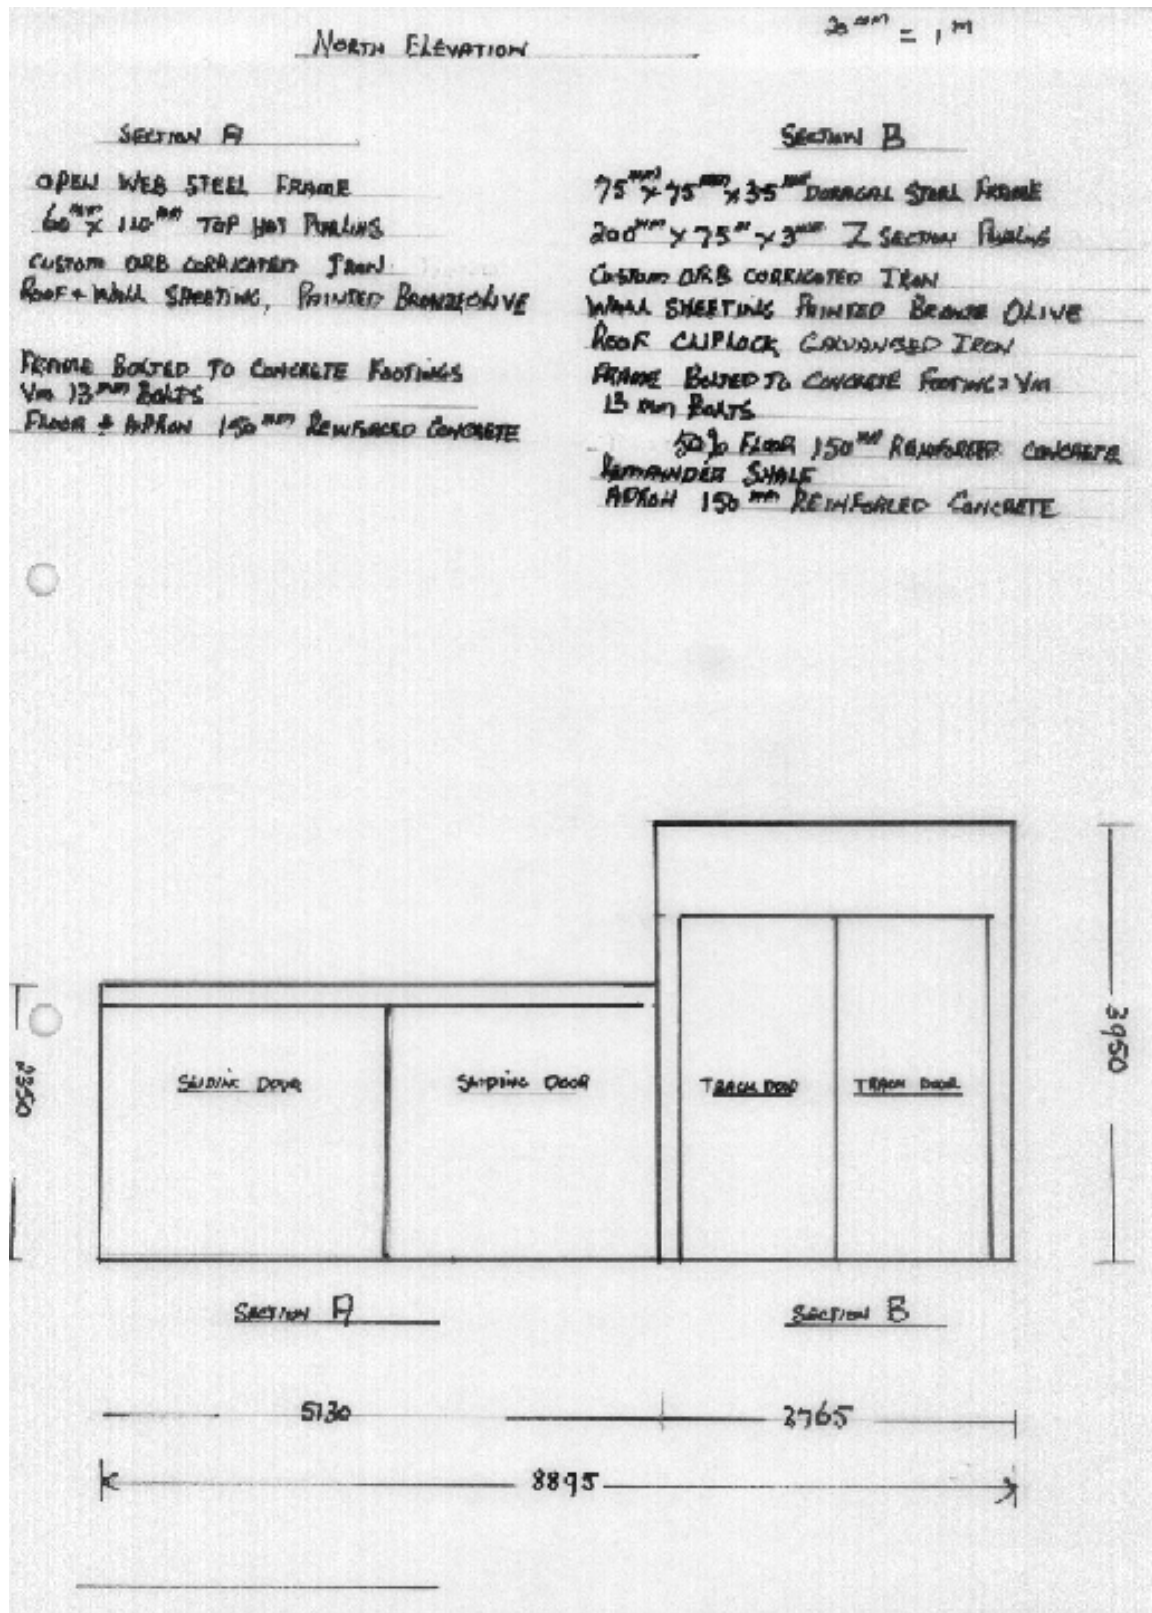 NORTH ELEVATION
20 mm = 1 M
SECTION A
OPEN WEB STEEL FRAME
60 mm x 110 mm TOP HAT PURLINS
CUSTOM ORB CORRICATED IRON
ROOF + WALL SHEETING, PAINTED BRONZE OLIVE
FRAME BOLTED TO CONCRETE FOOTINGS
VIA 13 mm BOLTS
FLOOR + APRON 150 mm REINFORCED CONCRETE
SECTION B
75 mm x 75 mm x 35 mm DURAGAL STEEL FRAME
200 mm x 75 m x 3 mm Z SECTION PURLINS
CUSTOM ORB CORRICATED IRON
WALL SHEETING PAINTED BRONZE OLIVE
ROOF CLIPLOCK GALVANISED IRON
FRAME BOLTED TO CONCRETE FOOTINGS VIA
13 mm BOLTS
50% FLOOR 150 mm REINFORCED CONCRETE
REMAINDER SHALE
APRON 150 mm REINFORCED CONCRETE
2350
SLIDING DOOR
SLIDING DOOR
TRACK DOOR
TRACK DOOR
3950
SECTION A
SECTION B
5130
3765
8895